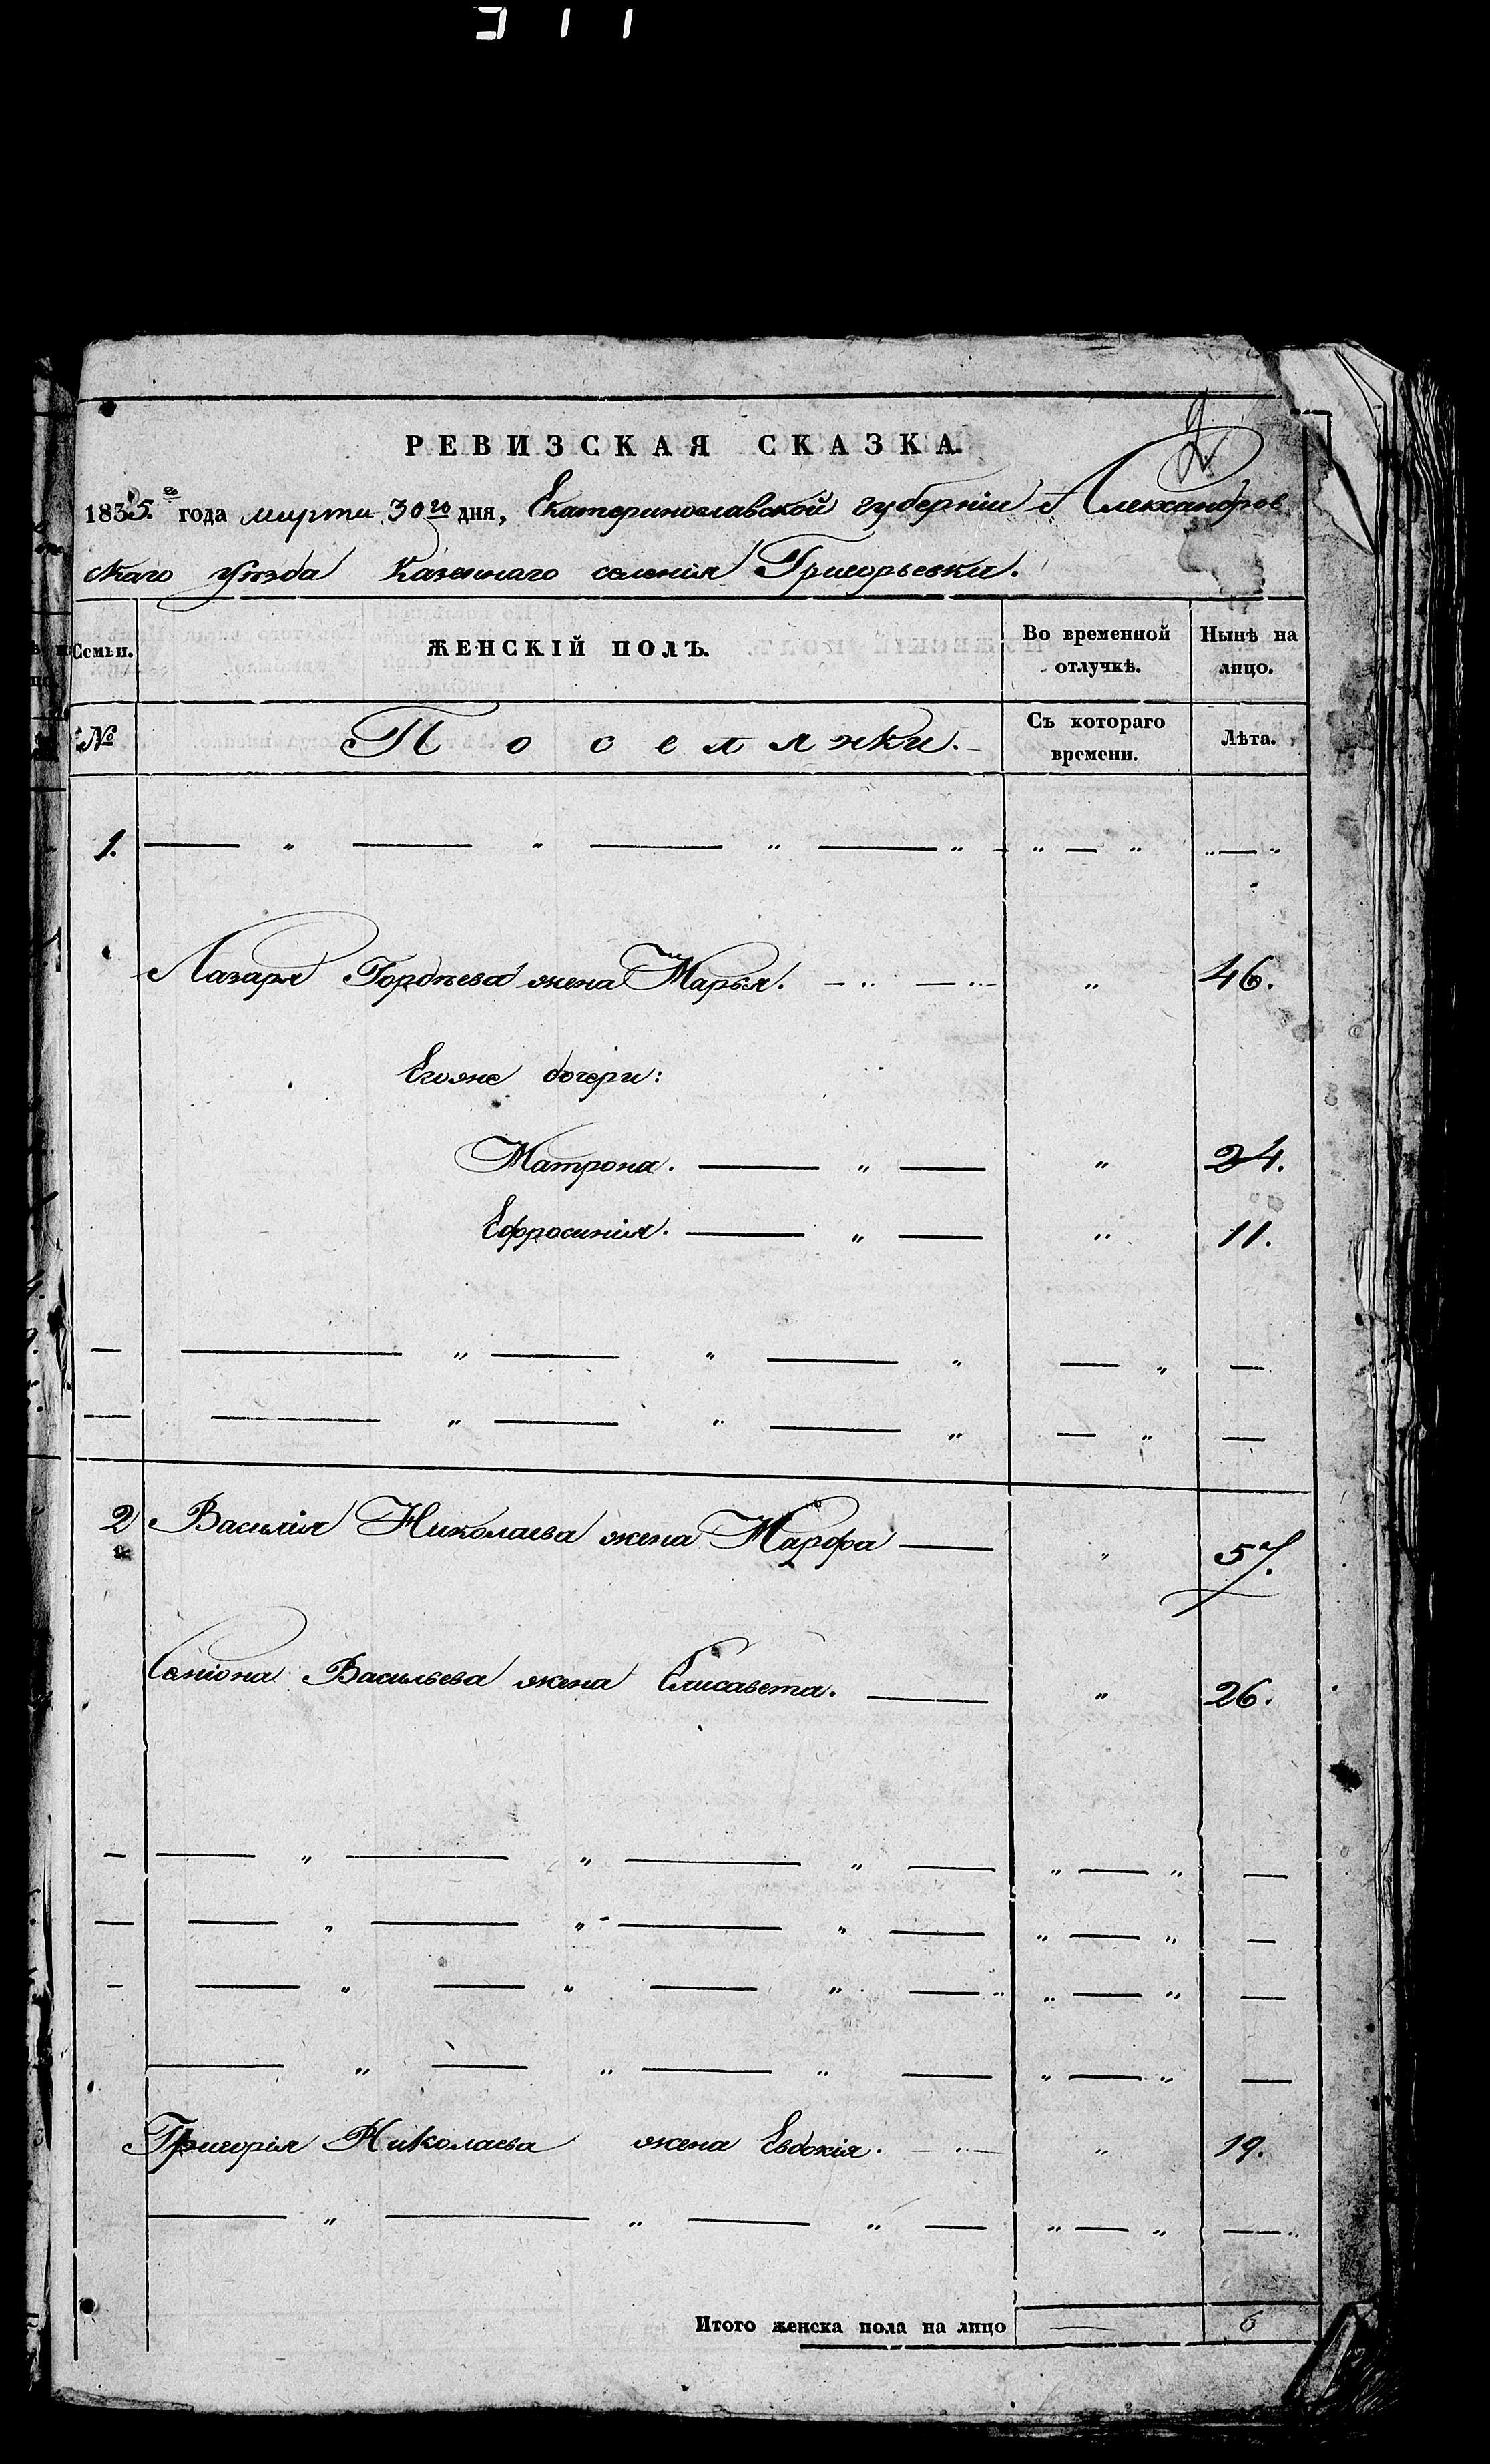 2
РЕВИЗСКАЯ СКАЗКА.
1835.го года марта 30го дня, Екатеринославской губерніи Александров
скаго уѣзда Казеннаго селенія Григорьевки.
Семьи.
ЖЕНСКІЙ ПОЛЪ.
Во временной отлучкѣ.
Нынѣ на лицо.
№
Поселянки.
Съ котораго времени.
Лѣта.
1. — „ — „ — „ — „ — „ — „ „ — „
Лазаря Гордѣева жена Марья. — „ — „ — „ 46.
Егоже дочери:
Матрона. — „ — „ 24.
Ефросинія. — „ — „ 11.
— — „ — „ — „ — „ —
— — „ — „ — „ — „ —
2 Василія Николаева жена Марфа — „ 57.
Семіона Васильева жена Елисавета. — „ 26.
— — „ — „ — „ — „ — „ —
— — „ — „ — „ — „ — „ —
— — „ — „ — „ — „ „ — „ —
— „ — „ — „ — „ — „ —
Григорія Николаева жена Евдокія. — „ — „ 19.
— „ — „ — „ — „ — „ — „
Итого женска пола на лицо — 6